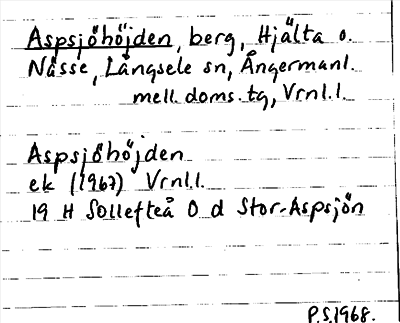 Aspsjöhöjden, berg, Hjälta o.
Nässe, Långsele sn, Ångermanl.
mell. doms. tg, Vrnl.l.
Aspsjöhöjden
ek (1967) Vrnl.l.
19 H Sollefteå O d Stor-Aspsjön
P.S. 1968.